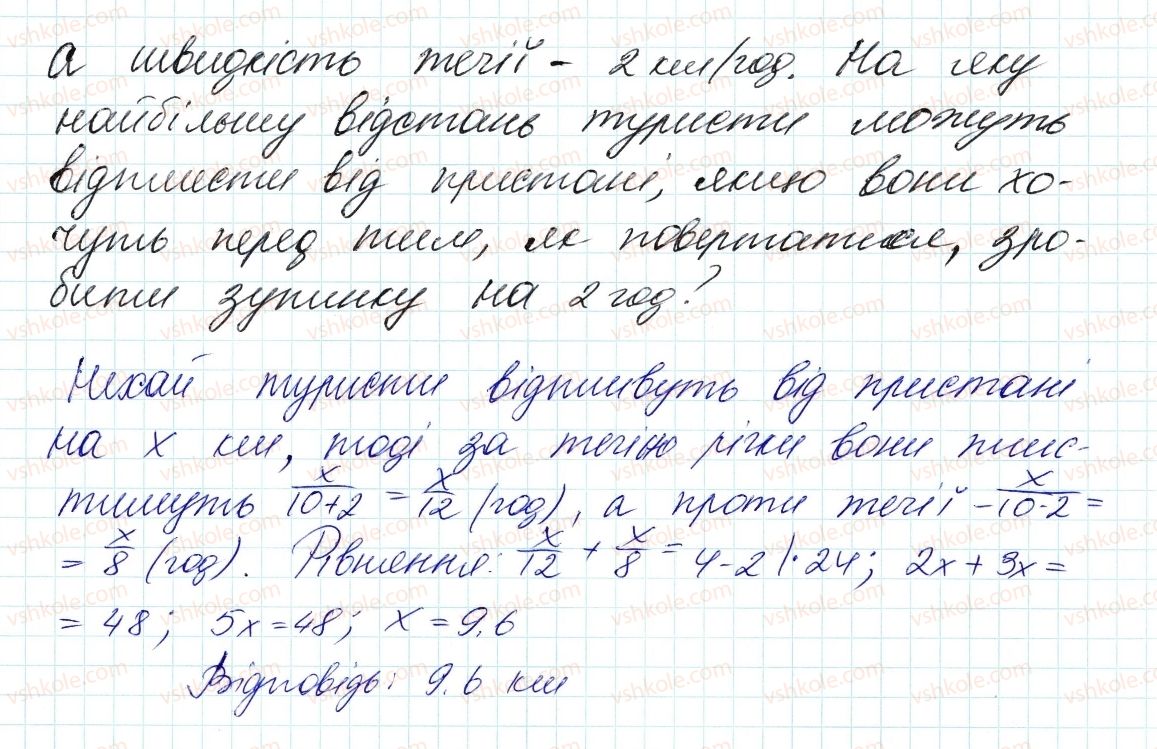 а швидкість течії - 2 км/год. На яку
найбільшу відстань туристи можуть
відплисти від пристані, якщо вони хо-
чуть перед тим, як повертатися, зро-
бити зупинку на 2 год?
Нехай туристи відпливуть від пристані
на x км, тоді за течією річки вони плис-
тимуть x/10+2 = x/12 (год), а проти течії - x/10-2 =
= x/8 (год). Рівняння: x/12 + x/8 = 4-2 |·24; 2x + 3x =
= 48; 5x = 48; x = 9.6
Відповідь: 9.6 км